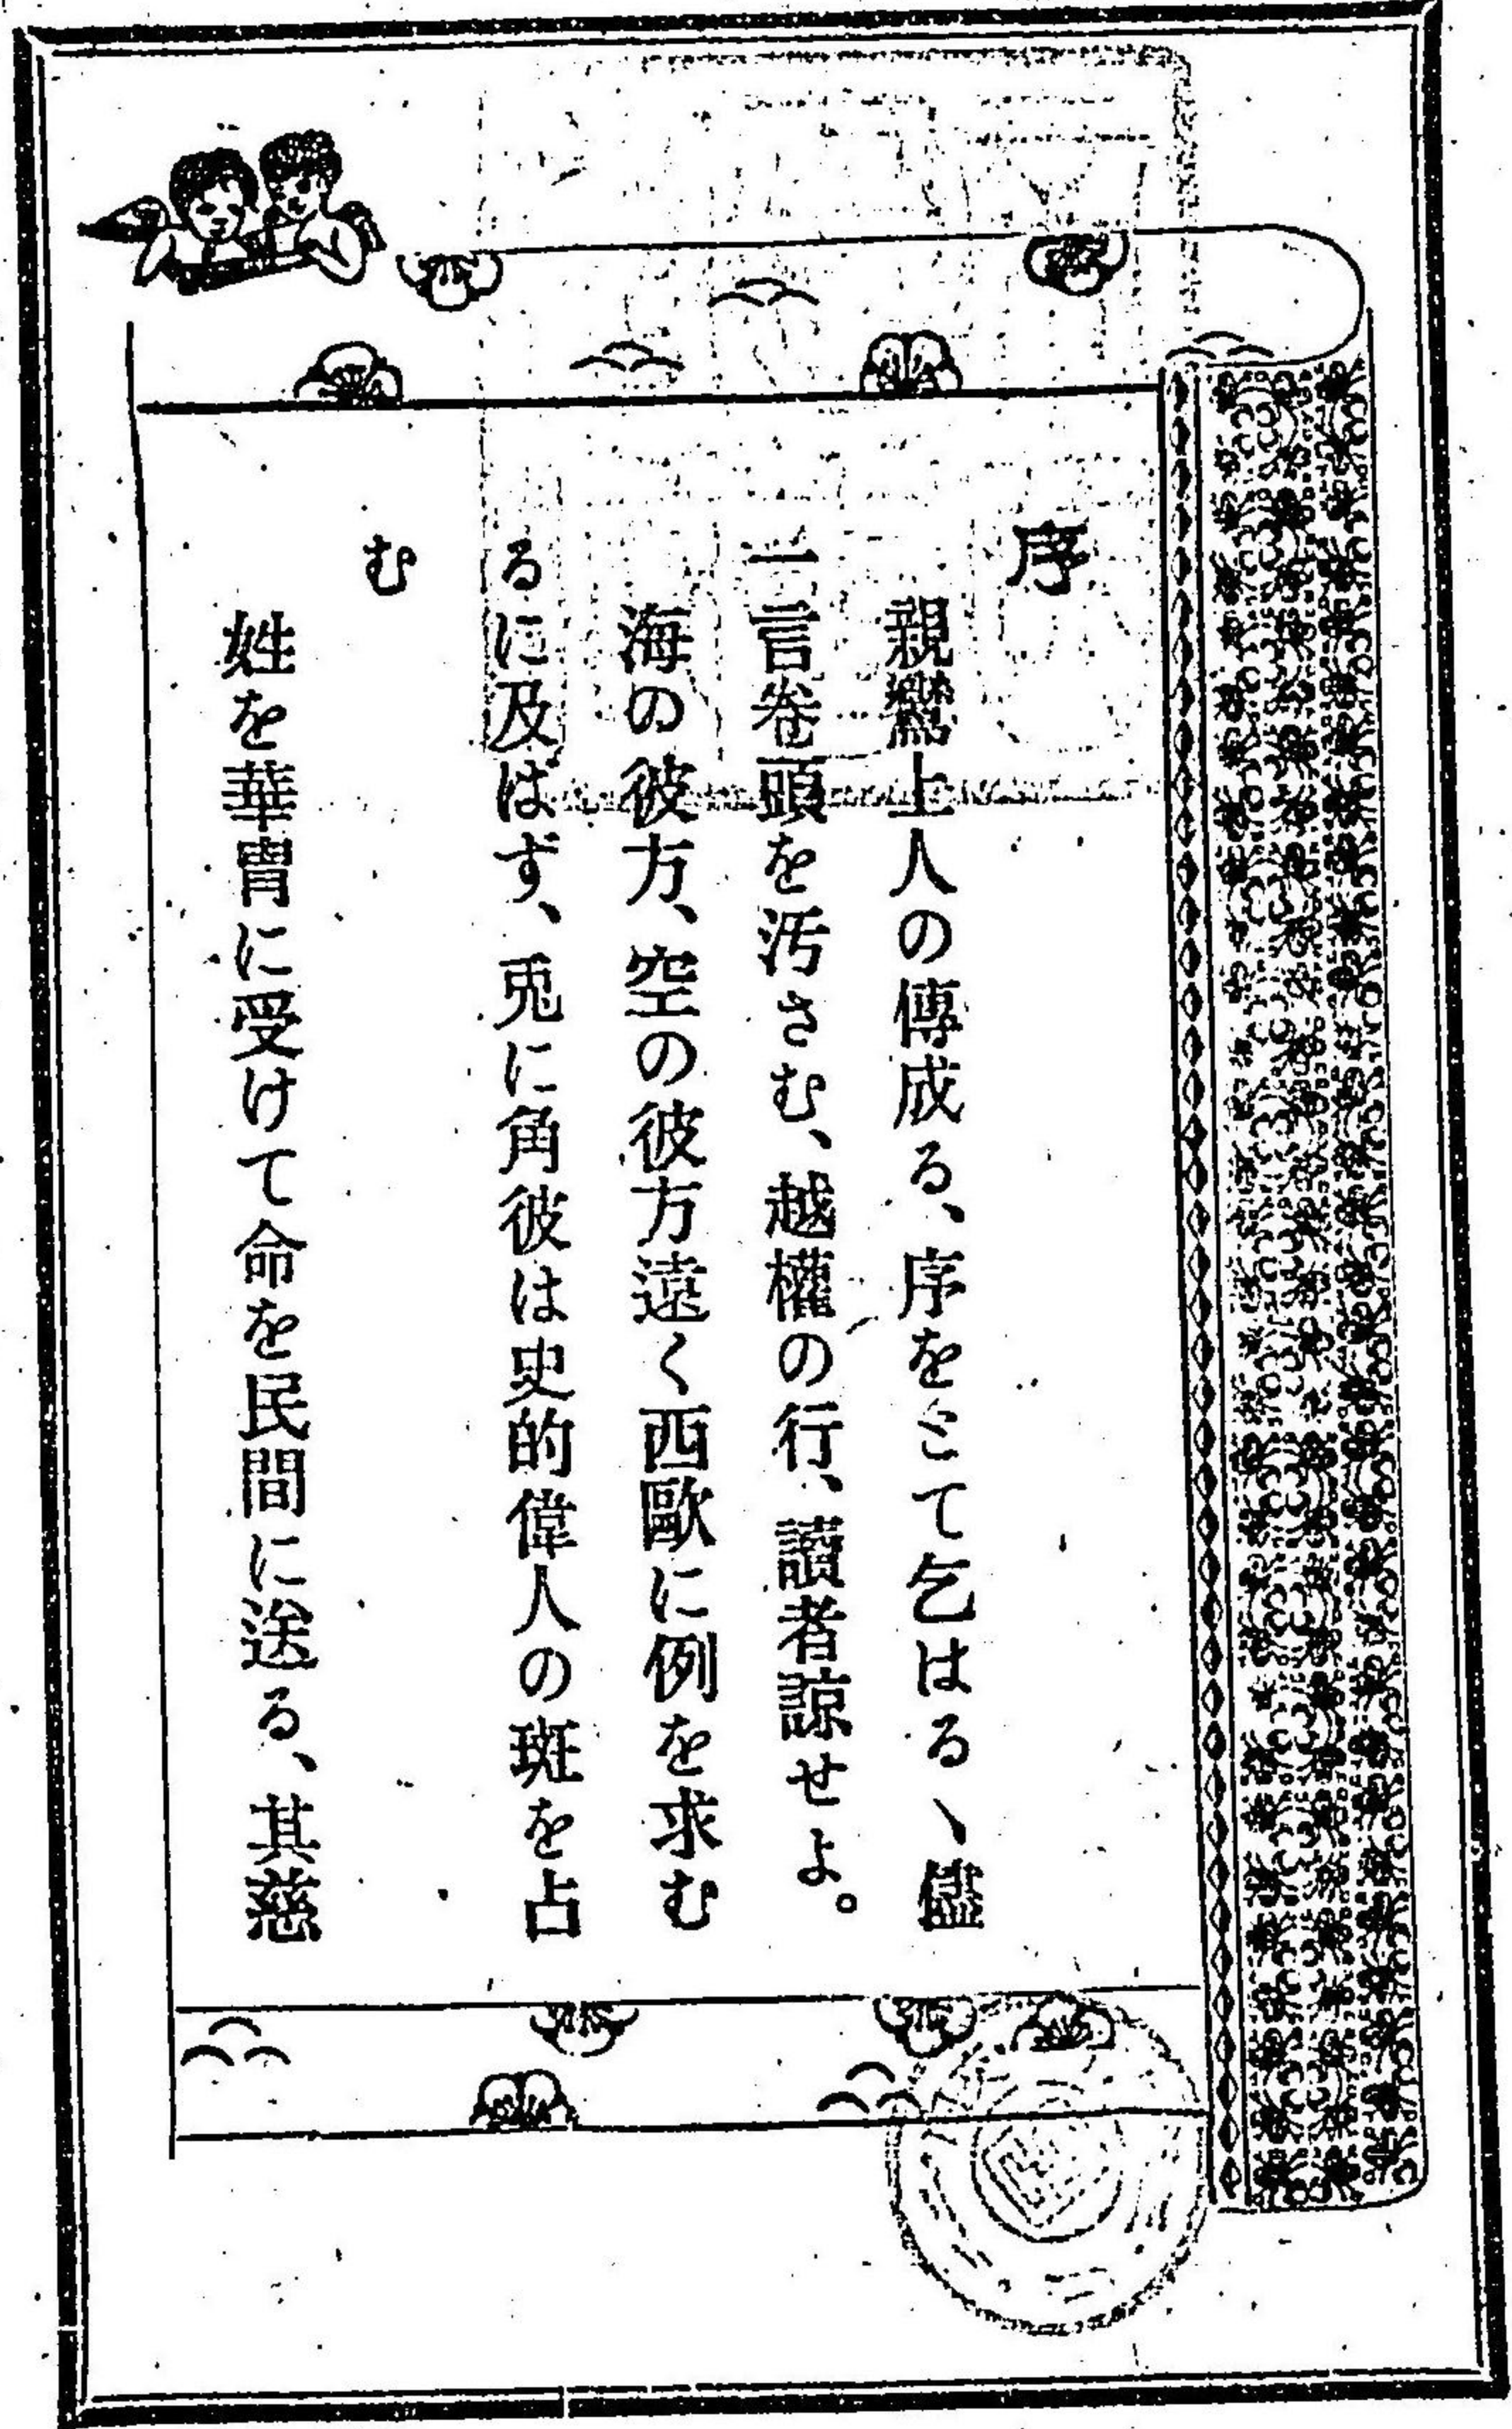 序
親鸞上人の傳成る、序をとて乞はるヽ儘
一言卷頭を汚さむ、越權の行、讀者諒せよ。
海の彼方、空の彼方遠く西歐に例を求む
るに及はず、兎に角彼は史的偉人の斑を占
む
姓を華冑に受けて命を民間に送る、其慈